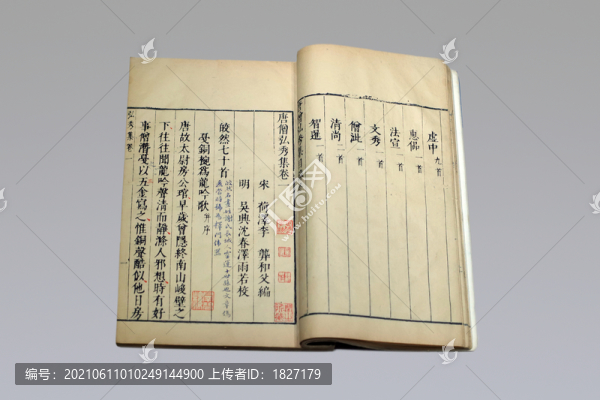 虛中 九首
惠偘 一首
法宣 一首
文秀 一首
僧泚 二首
清尚 一首
智暹 一首
唐僧弘秀集卷
宋 菏澤李 龏和父編
明 吳興沈春澤雨若校
皎然七十首
戛銅椀爲龍吟歌 并序
唐故太尉房公琯早歲曾隱終南山峻壁之
下往往聞龍吟聲清而靜滌人邪想時有好
事僧潛戛以五金寫之惟銅聲酷似他日房
弘秀集卷一
编号：20210611010249144900 上传者ID：1827179